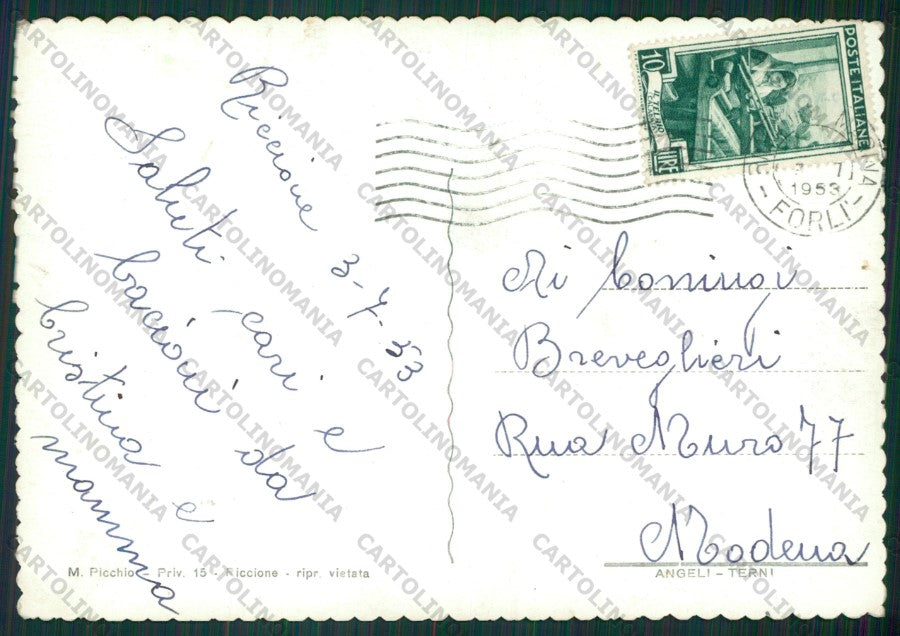 Riccione 3-7-53
Saluti cari e
bacioni da
Cristina e
mamma
M. Picchio - Priv. 15 - Riccione - ripr. vietata
10
LIRE
POSTE ITALIANE
1953
FORLI'
Ai Coniugi
Breveglieri
Rua Muro 77
Modena
ANGELI - TERNI
CARTOLINOMANIA